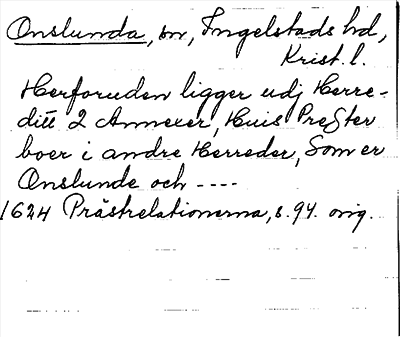 Onslunda, sn, Ingelstads hd,
Krist. l.
Herforuden ligger udj Herre-
ditt 2 Annexer, Huis Prester
boer i andre Herreder, Som er
Onslunde och ----
1624 Prästrelationerna, s. 94. orig.